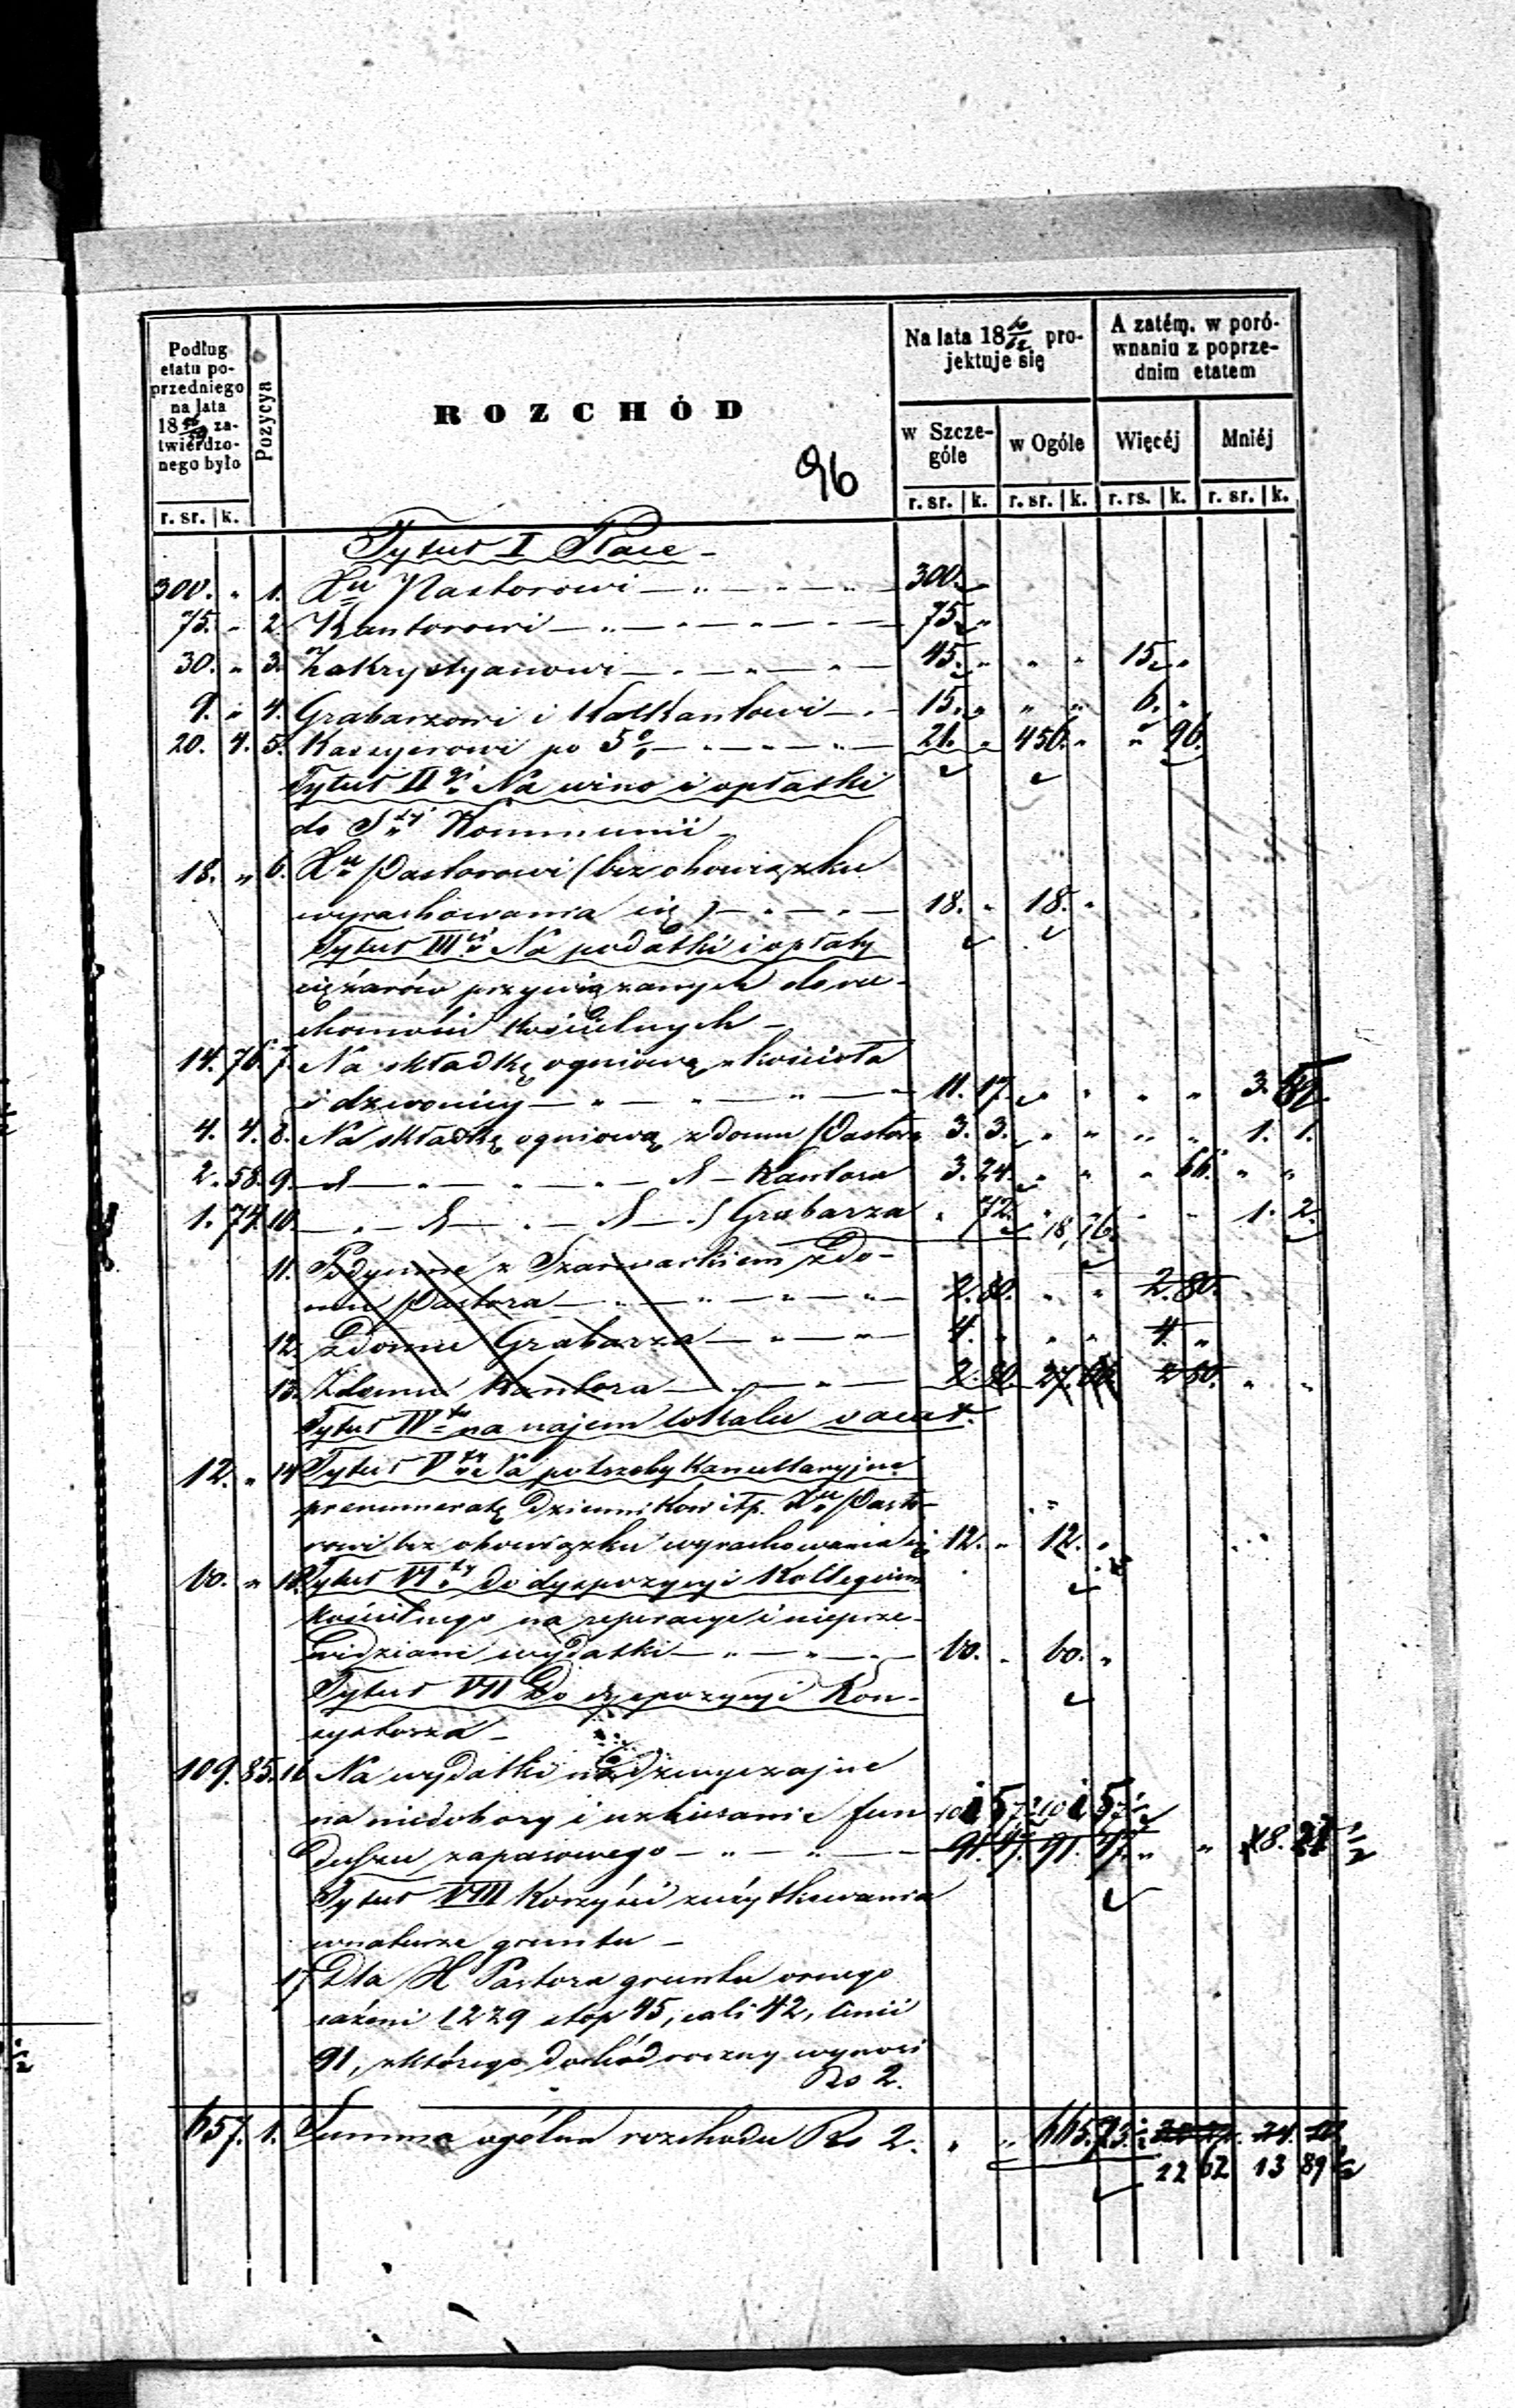 Podług etatu poprzedniego na lata 18 56/59 zatwierdzonego było
Pozycya
ROZCHÓD
96
Na lata 18 60/62 projektuje się
A zatém, w porównaniu z poprzednim etatem
w Szczególe
w Ogóle
Więcéj
Mniéj
r. sr. | k.
r. sr. | k. r. sr. | k. r. rs. | k. r. sr. | k.
Tytuł I Płace -
300. " 1. Xu Pastorowi — " — " — " — 300. "
75. " 2. Kantorowi — " — " — " — 75. "
30. " 3. Zakrystyanowi — " — " — 45. " " " 15. "
9. " 4. Grabarzowi i Kalkantowi — " — 15. " " " 6. "
20. 4. 5. Kassyerowi po 5% — " — " — 21. " 456. " " 96.
Tytuł IIgi Na wino i opłatki
do Stej Kommunii -
18. " 6. Xu Pastorowi (bez obowiązku
wyrachowania się) — " — " — 18. " 18. "
Tytuł IIIci Na podatki i opłaty
ciężarów przywiązanych do ru-
chomości kościelnych -
14. 76. 7. Na składkę ogniową z kościoła
i dzwonicy — " — " — " — 11. 17. " " " " 3. 59.
4. 4. 8. Na składkę ogniową z domu Pastora 3. 3. " " " " 1. 1.
2. 58. 9. — d — " — " — d — Kantora 3. 24. " " " 66. " "
1. 74. 10. — " — d — " — d — " Grabarza " 72. 18. 16. " " 1. 2.
11. Podymne z Szarwarkiem z do-
mu Pastora — " — " — " — 2. 80. " " 2. 80.
12. Z domu Grabarza — " — " — 4. " " " 4. "
13. Z domu Kantora — " — " — 2. 80. 27. 2. 80. " "
Tytuł IVty na najem lokalu vacat.
12. " 14 Tytuł Vty Na potrzeby Kancellaryjne
prenumeratę Dzienników itp. Xu Pasto-
rowi bez obowiązku wyrachowania się 12. " 12. "
60. " 15. Tytuł VIty do dyspozycyi Kollegium
Kościelnego na reperacye i nieprze-
widziane wydatki — " — " — 60. " 60. "
Tytuł VII Do dyspozycyi Kon-
systorza -
109. 85. 16 Na wydatki nadzwyczajne
na niedobory i uzbieranie fun- 101 57½ 101 57½
duszu zapasowego — " — " — 91. 47. 91. 47. " " 8. 27½
Tytuł VIII Korzyści z użytkowania
w naturze gruntu -
17 Dla X Pastora gruntu ornego
sążeni 1229 stop 45, cali 42, linii
91, z którego dochód roczny wynosi
Rs 2.
657. 1. Summa ogólna rozchodu Rs 2. " " 665. 73½
22 62 13 89½